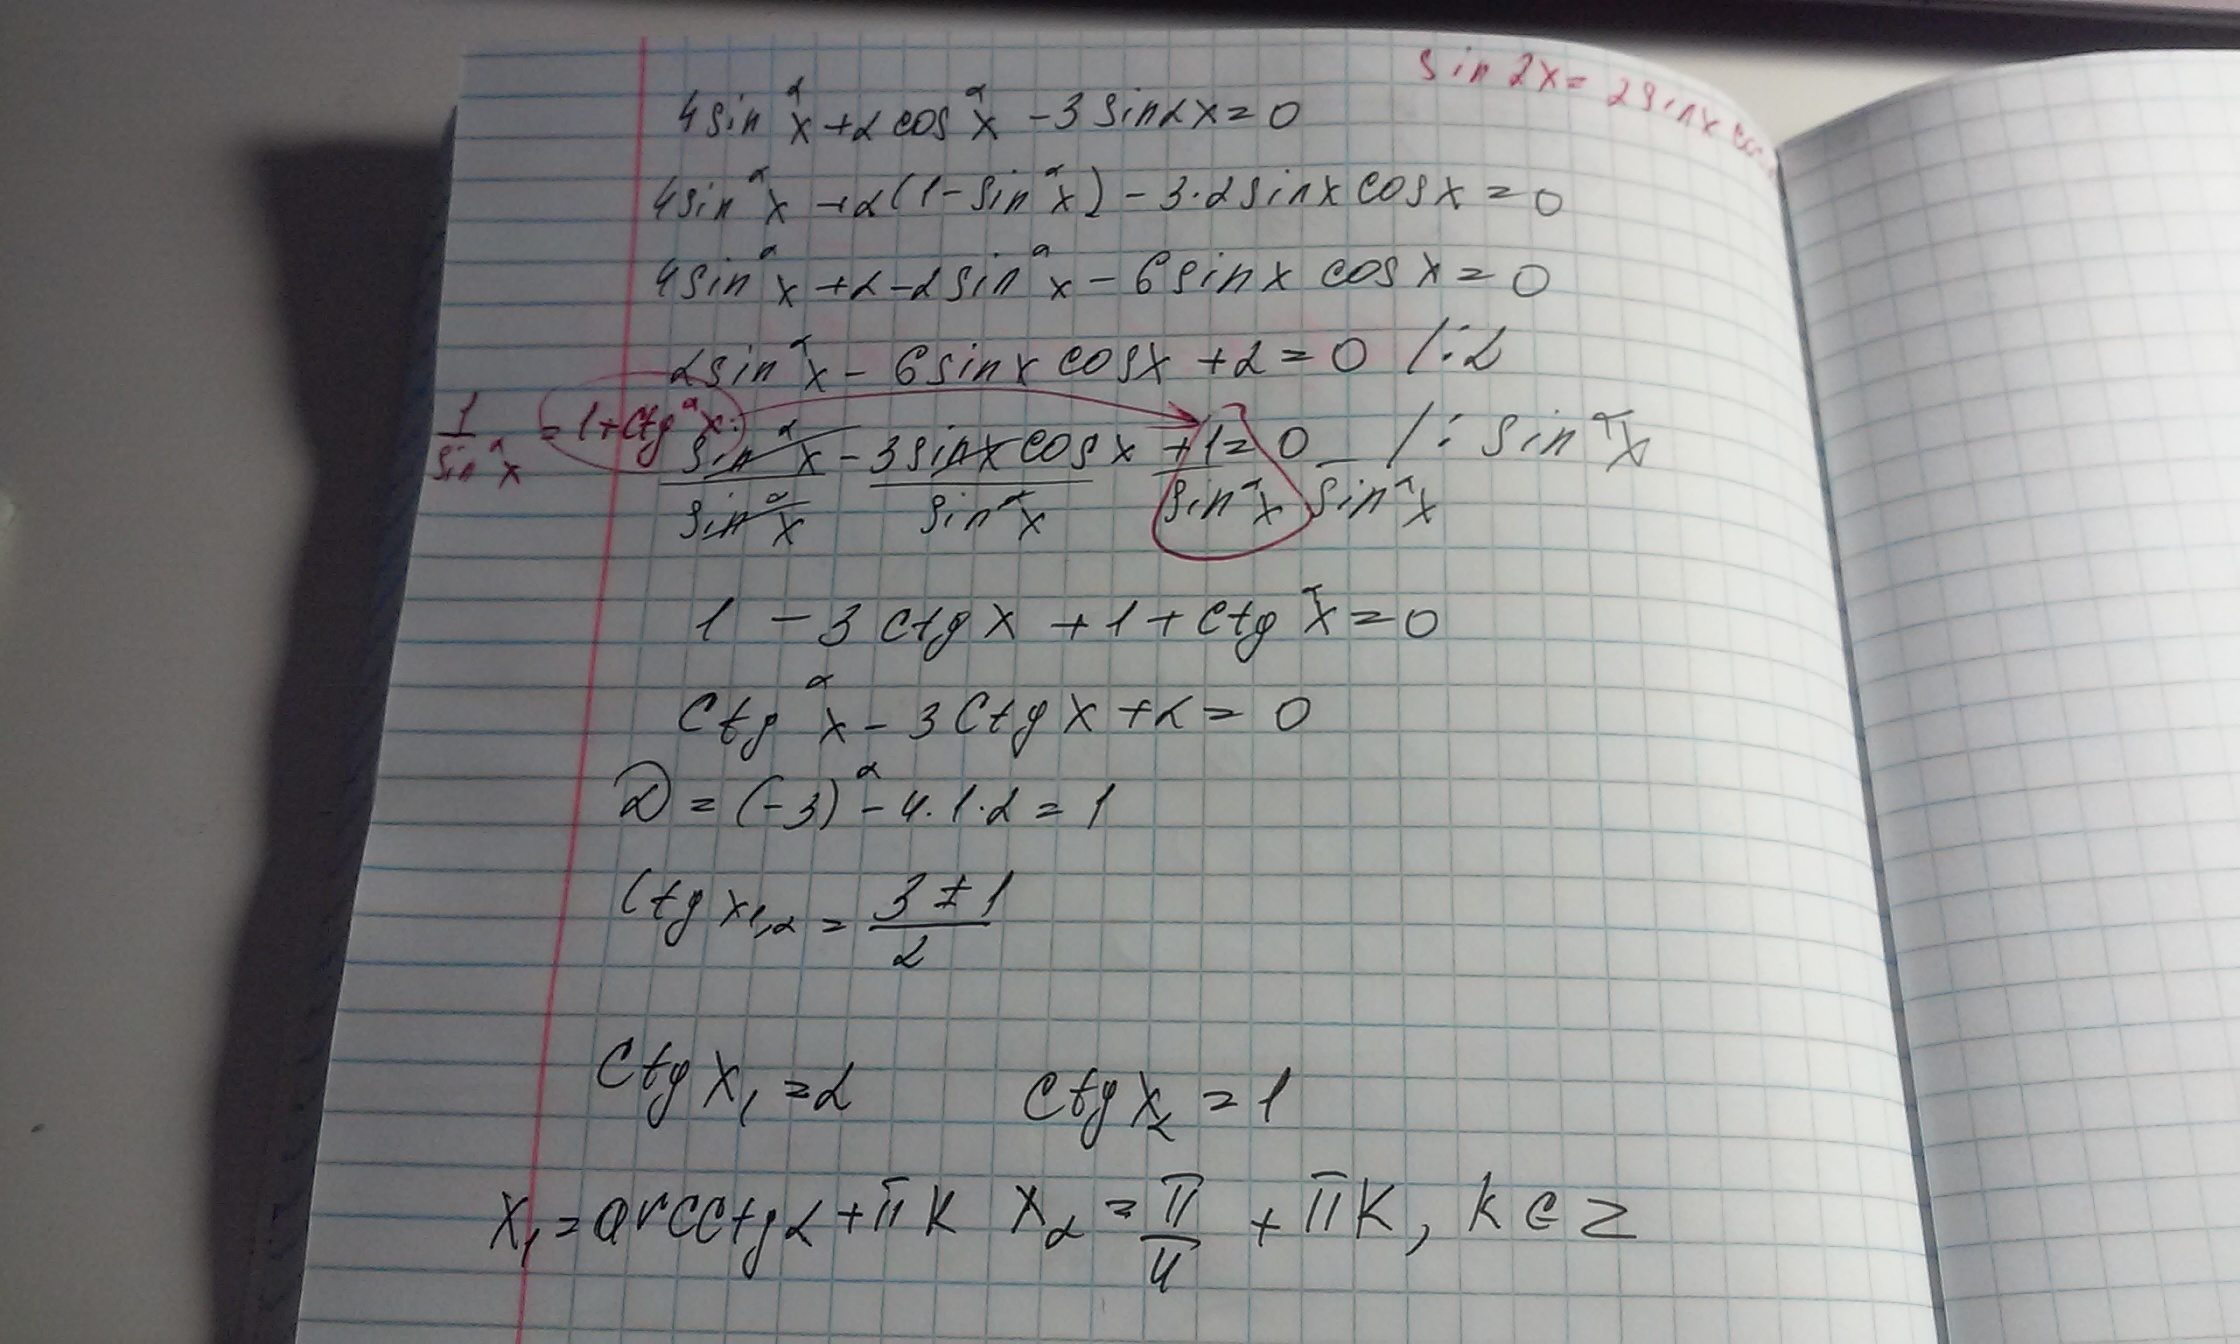 sin 2x = 2 sin x co
4 sin² x + 2 cos² x - 3 sin 2x = 0
4 sin² x + 2(1 - sin² x) - 3·2 sin x cos x = 0
4 sin² x + 2 - 2 sin² x - 6 sin x cos x = 0
2 sin² x - 6 sin x cos x + 2 = 0 /:2
1/sin² x = 1 + ctg² x
sin² x/sin² x - 3 sin x cos x/sin² x + 1/sin² x = 0/sin² x /: sin² x
1 - 3 ctg x + 1 + ctg² x = 0
ctg² x - 3 ctg x + 2 = 0
D = (-3)² - 4·1·2 = 1
ctg x₁,₂ = (3 ± 1)/2
ctg x₁ = 2 ctg x₂ = 1
x₁ = arcctg 2 + πk x₂ = π/4 + πk, k ∈ Z